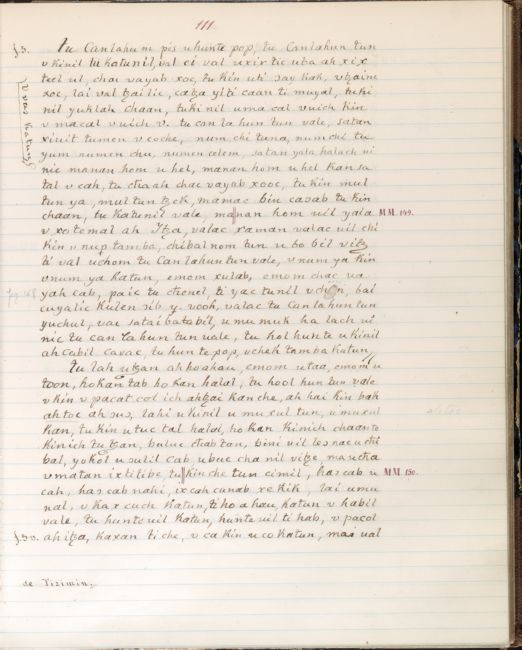 111.
f. 5. Tu Canlahun pis uhunte pop, tu Canlahun tun
v kinil tu katunil, val ci val uxir tic uba ah xix
teel ul, chac vayab xoc, tu kin uti say kak, vtzain
xoc, lai val tzailic, catza yiti caan ti muyal, tu ki
nil yuklah chaan, tu ki nil uma cal vuich kin
v macal v uich v. tu can la hun tun vale, satan
xiuit tumen v coche, num chi tuna, num chi tu
yum numen chu, numen celem, satan yala halach ui
nic manan hom u hel, manan hom u hel kan sa
tal v cah, tu chaah chac vayab xooc, tu kin mul
tun ya, mul tun tzek, mamac bin casab tu kin
chaan, tu katunil vale, manan hom uil yala MM. 149.
v xotemal ah Itza, valac raman valac uil chi
kin v nup tamba, chibal nom tun u bo bil vitz
ti val uchom tu Canlahun tun vale, v num ya kin
v num ya katun, emom xulab, emom chac ua
yah cab, paic tu chenel, ti yac tunil v chen, bai
cuyalic kulen sib y. vooh, valac tu Can la hun tun
yuchul, vai satai batabil, u mu muk ha lach ui
nic tu can la hun tun uale, tu hol hunte u kinil
ah cabil cavac, tu hunte pop, uchek tamba katun,
Tu lah utzan ahkoahau, emom u taa, emom u
toon, ho kan tab ho kan halal, tu hool hun tun vale
v kin v pacat col ich ahtzai kan che, ah hai kin bak
ah toc ah sus, lahi u kinil u mu xul tun, u mu xul
kan, tu kin u tuc tal halal, ho kan kinich chaante
kinich tu tzan, buluc chab tan, bini uil tes nac u chi
bal, yokol u sulil cab, u buc cha nil vitze, ma u cha
v matan ix ti tibe, tu kin che tun cimil, haz cab u MM. 150.
cah, haz cab nahi, ix cah cunab xe kik, lai umu
nal, v kax cuch katun, ti ho ahau, katun v habil
vale, tu hunte uil katun, hunte uil ti hab, v pacol
f. 5 v. ah itza, kaxan ti che, v ca kin u co katun, mai ual
de Tizimin,